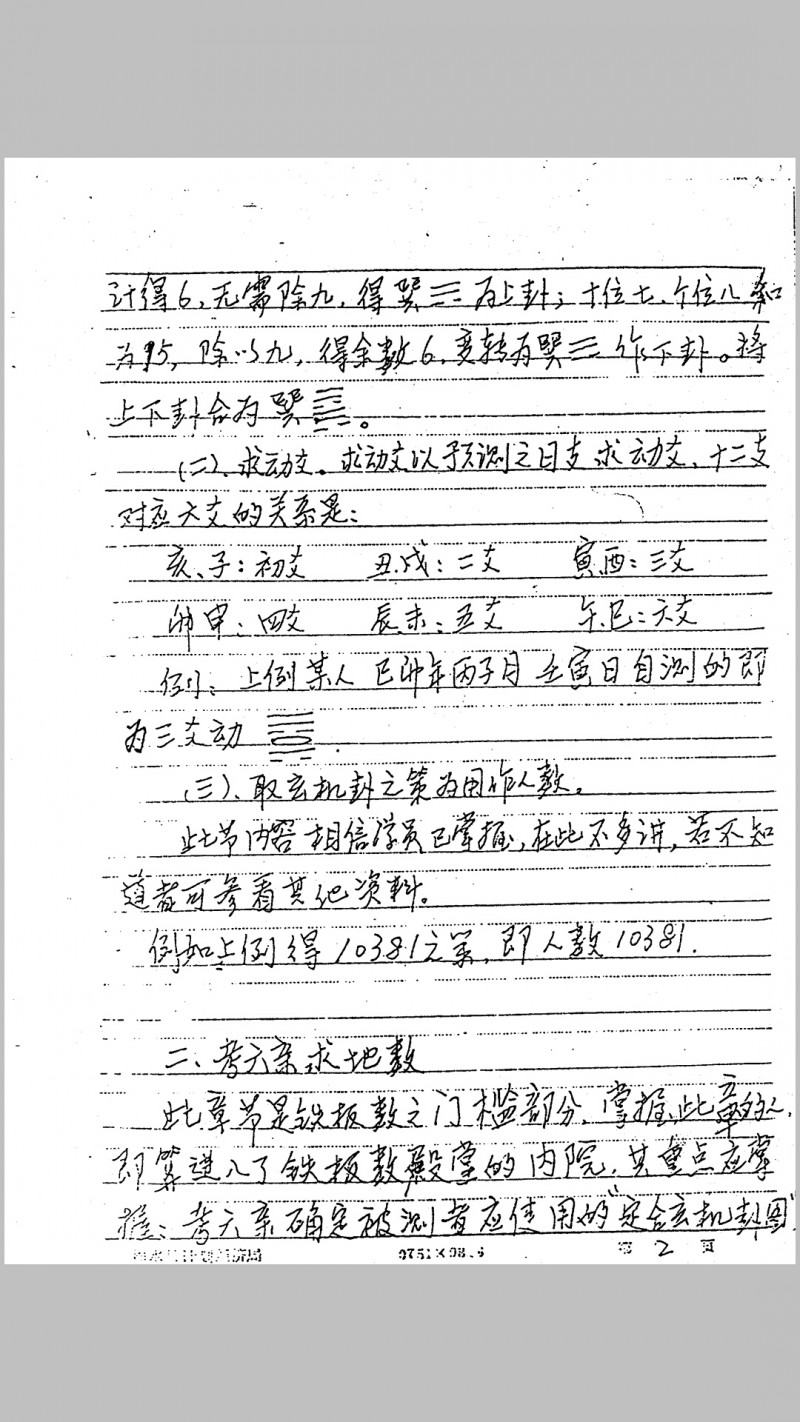 计得6,无需除九,得巽☴为上卦;十位七、个位八和
为15,除以九,得余数6,变转为巽☴作下卦。将
上下卦合为巽䷸。
(二)、求动爻。求动爻以预测之日支求动爻,十二支
对应六爻的关系是:
亥、子:初爻 丑.戌:二爻 寅酉:三爻
卯申:四爻 辰.未:五爻 午.巳:六爻
例:上例某人己卯年丙子月壬寅日自测的即
为三爻动
(三)、取玄机卦之策为用作人数。
此节内容相信学员已掌握,在此不多讲,若不知
道者可参看其他资料。
例如上例得10381之策,即人数10381.
二、考六亲求地数
此章节是铁板数之门槛部分,掌握此章的人,
即算进入了铁板数殿堂的内院,其重点应掌
握:考六亲确定被测者应使用的"定合玄机卦图"
第 2 页